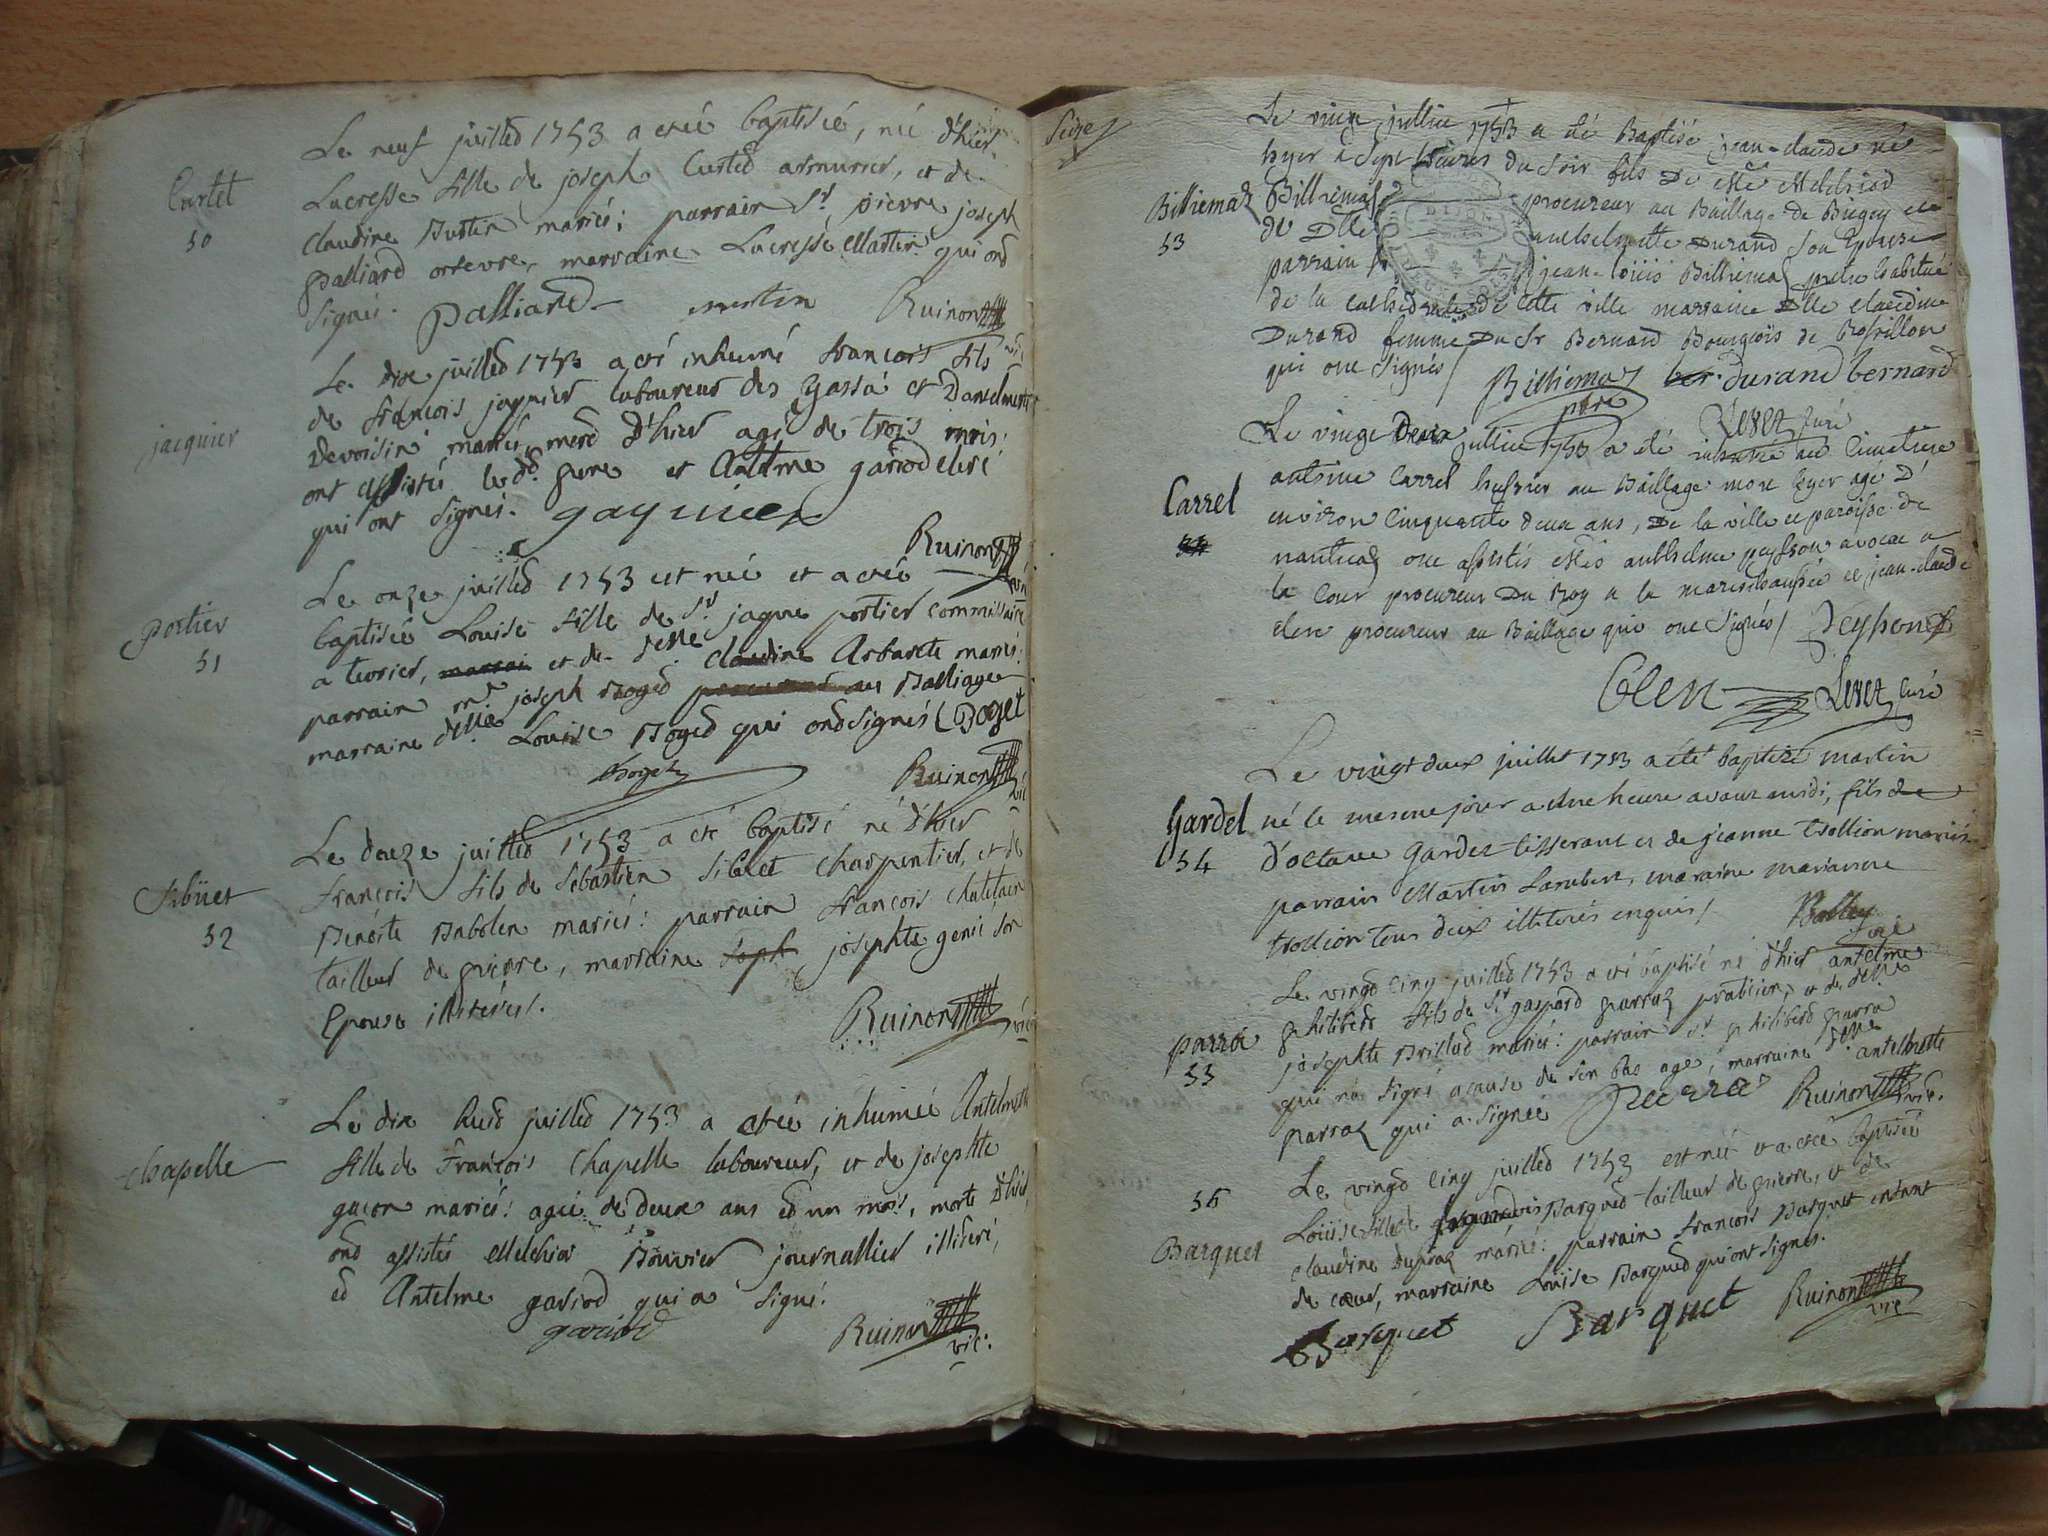 Curtet
50
Le neuf juilled 1753 a eté baptisée, née d'hier
Lucresse fille de joseph Curted armurier, et de
claudine Burtin mariés; parrain Sr. pierre joseph
palliard orfevre, marraine Lucresse Martin qui ond
signés. palliard martin Ruinon
vic
jacquier
Le dix juilled 1753 a eté inhumé françois fils
de françois jaquier laboureur des gassá et Dantelmette
Devoisin mariés, mord D'hier agé de trois mois
ont assistés le d. pere et Antelme gariod cleré
qui ont signés. jaquier
Ruinon
portier
51
Le onze juilled 1753 est née et a etée
baptisée Louise fille de Sr. jaque portier commissaire
a terrier, et de delle claudine Arbarete mariés:
parrain mr. joseph Boged procureur au Balliage
marraine delle Louise Boged qui ond signés Boget
Boget Ruinon
vic
Sibüet
52
Le douze juilled 1753 a eté baptisé né d'hier
françois fils de sébastien Sibuet charpentier, et de
Benoite Babolen mariés: parrain françois chatelain
tailleur de pierre, marraine joseph josephte genie son
Epouse illiterés.
Ruinon vic
chapelle
Le dix huid juilled 1753 a etée inhumée Antelmette
fille de François Chapelle laboureur, et de josephte
guion mariés: agée de deux ans ed un mois, morte d'hier
ond assistés Melchior Bouvier journallier illiteré,
ed Antelme gariod qui a signé.
gariod Ruinon
vic:
Seize
Billiemaz
53
Le vingt juillet 1753 a été Baptisé jean-claude né
hyer à Sept heures du soir fils De Me Melchiod
Billiemaz procureur au Baillage de Bugey et
de Dlle anthelmette Durand son Epouse
parrain Sr jean-loüis Billiemaz pretre habitué
de la cathedrale de cette ville marraine Dlle claudine
Durand femme Du Sr Bernard Bourgeois de Rossillon
qui ont signés / Billiemaz durand bernard
pere Levet Curé
Carrel
Le vingt Deux juillet 1753 a été inhumé au cimetiere
antoine Carrel huissier au Baillage mort hyer agé D'
environ cinquante deux ans, De la ville et paroisse de
nantua ont assistés Mes anthelme peysson avocat a
la Cour procureur Du Roy a la marechaussée et jean-claude
clerc procureur au Baillage qui ont signés / Peysson
Clerc Levet Curé
Gardet
54
Le vingt deux juillet 1753 a été baptizé martin
né le mesme jour a une heure avant midi, fils de
d'octave Gardet tisserant et de jeanne trollion mariés
parrain Martin Lambert, maraine marianne
trollion tous deux illiterés enquis /
Bolley
Curé
parra
55
Le vingd cinq juilled 1753 a eté baptisé né d'hier antelme
philiberd fils de Sr gaspard parraz praticien, et de delle
josephte Brillad mariés: parrain Sr philiberd parra
qui na signé acause de son bas age, marraine delle antelmette
parraz qui a signée parra Ruinon
vic.
56
Barquet
Le vingd cinq juilled 1753 est née et a etée baptisée
Loüise fille de françois Barqued tailleur de pierre, et de
claudine dupraz mariés: parrain françois Barquet enfant
de cœur, marraine Loüise Barqued qui ont signés.
Barquet Barquet Ruinon
vic